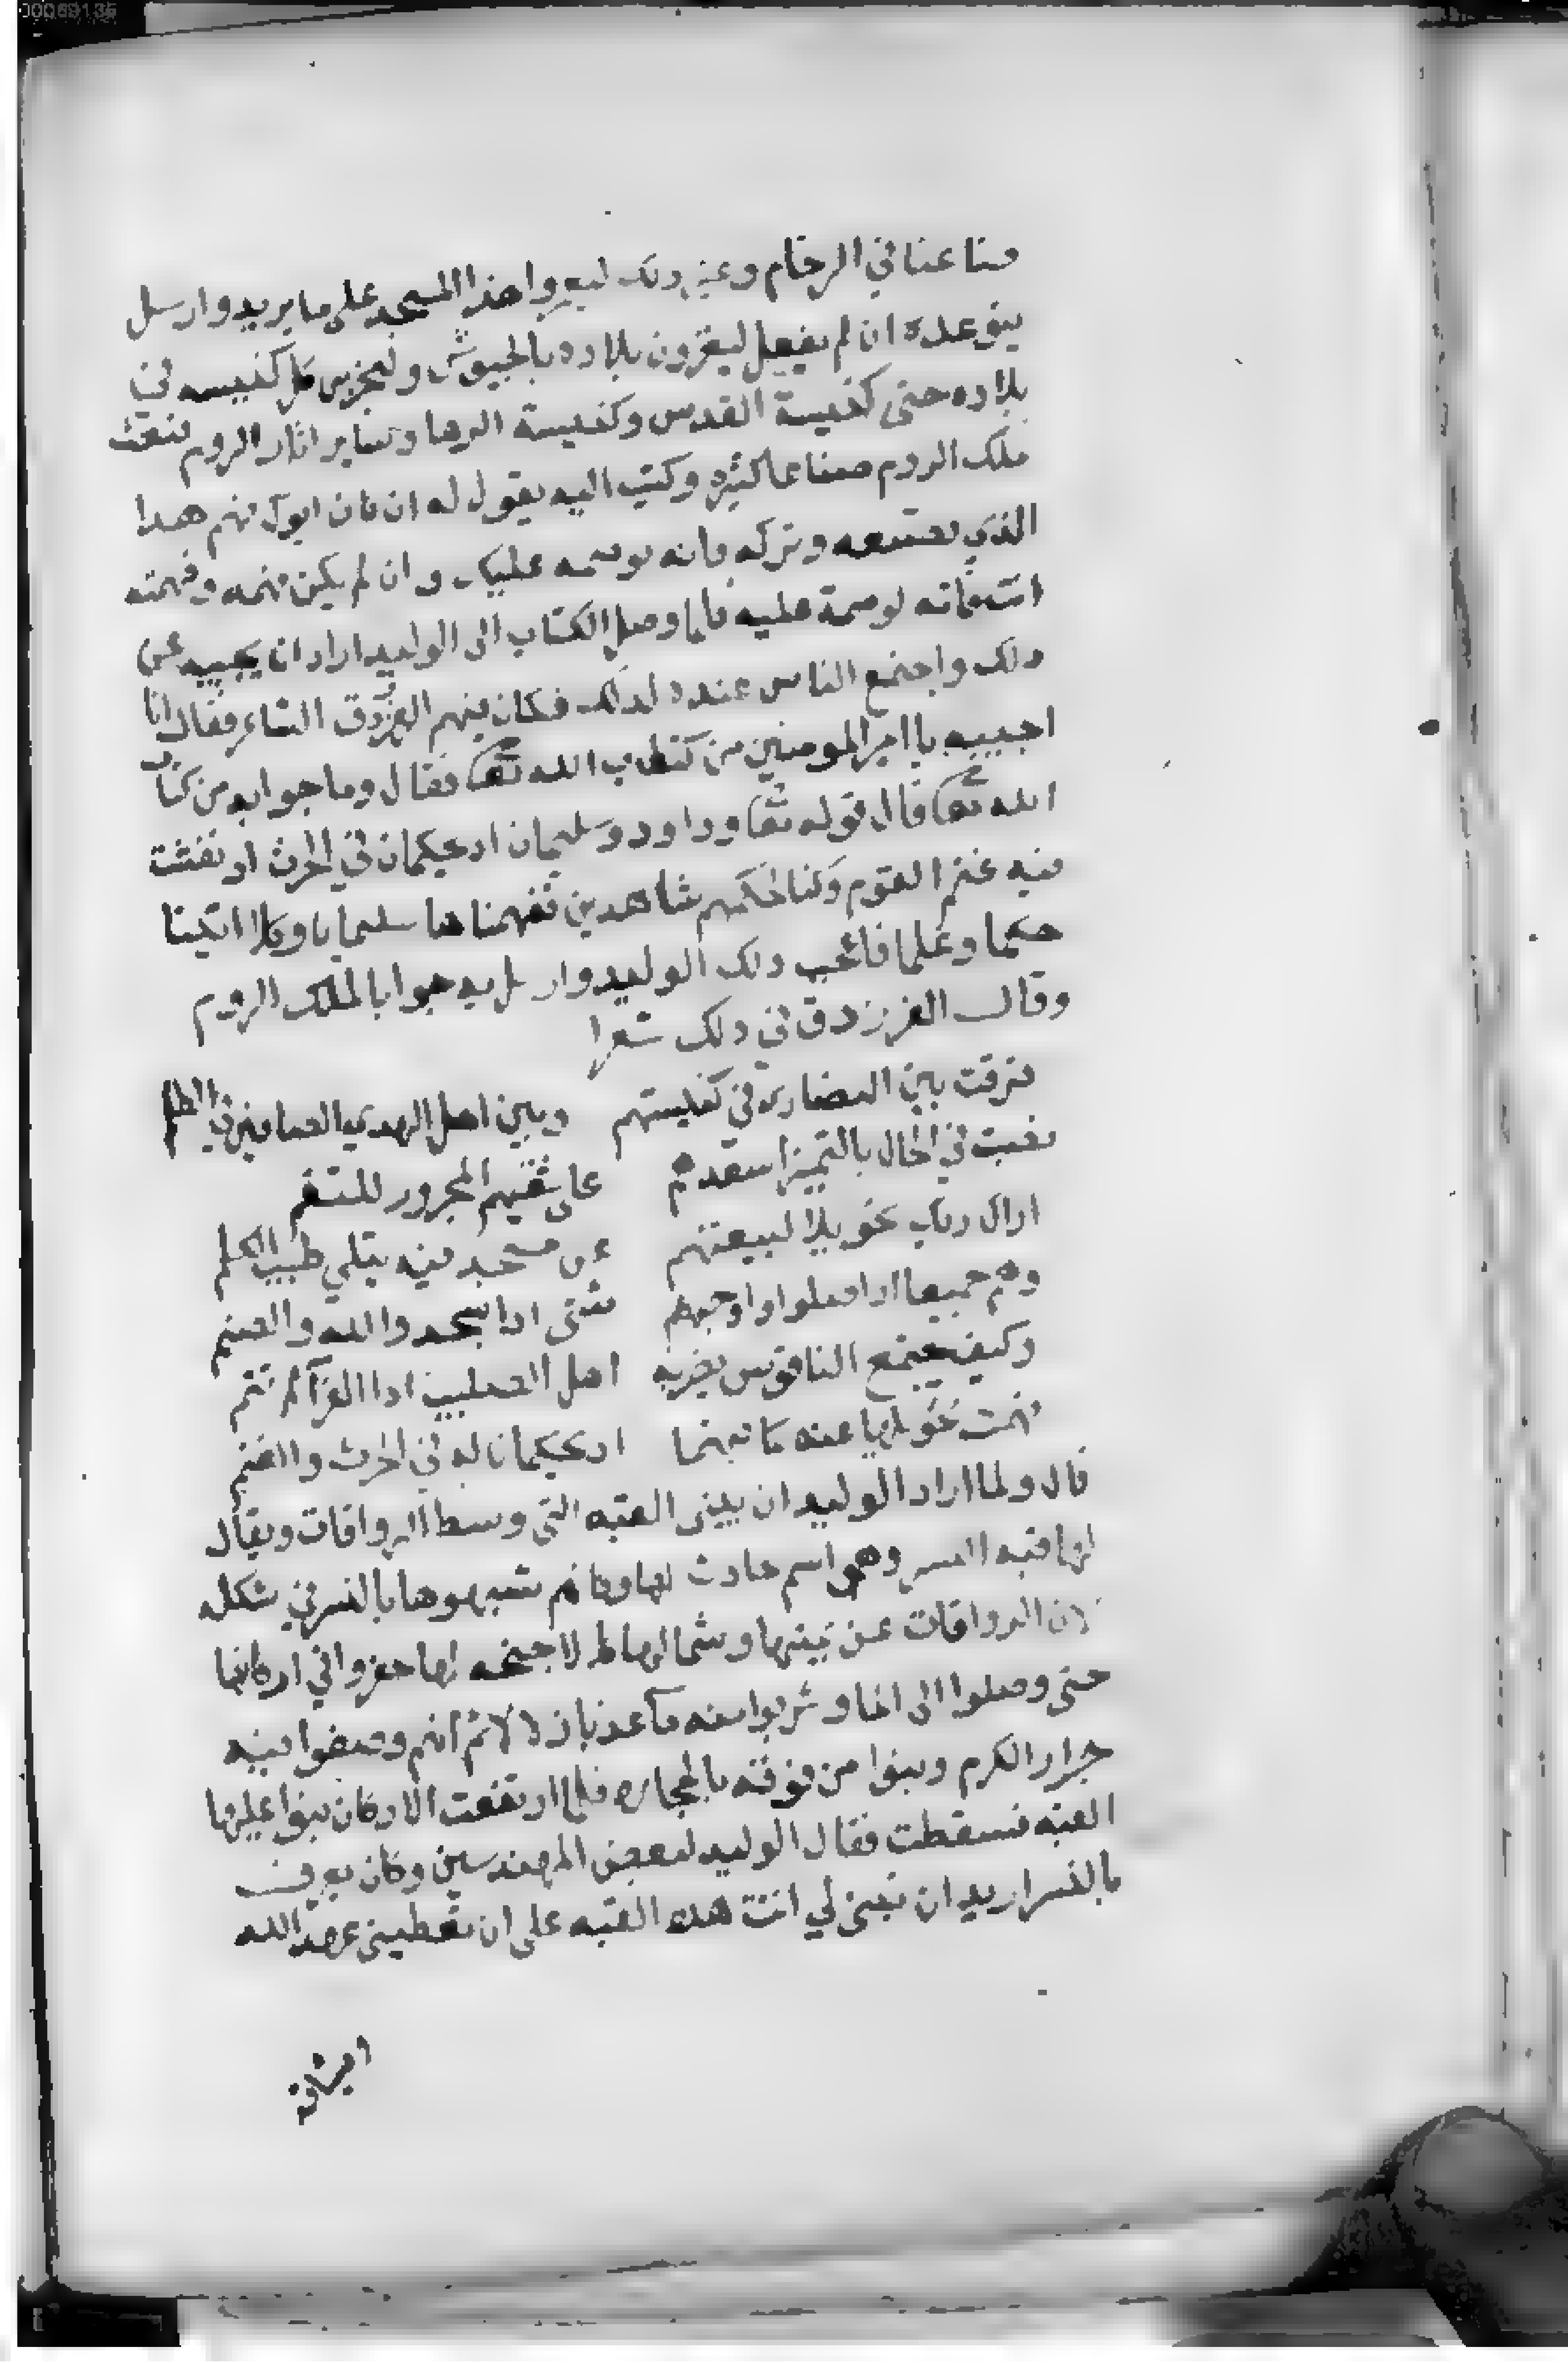 00069135
صناعنا في الرخام وغير ذلك ليعمروا هذا المسجد على ما يريد وارسل
يتوعده ان لم يفعل ليغزون بلاده بالجيوش وليخربن كل كنيسه في
بلاده حتى كنيسة القدس وكنيسة الرها وساير اثار الروم فبعث
ملك الروم صناعا كثيره وكتب اليه يقول له ان كان ابوك فهم هدا
الذي تصنعه وتركه فانه لوصمه عليك وان لم يكن فهمه وفهمته
انت فانه لوصمة عليه فلما وصل الكتاب الى الوليد اراد ان يجيبه عن
دلك واجتمع الناس عنده لدلك فكان فيهم الفرزدق الشاعر فقال انا
اجيبه يا امير المومنين من كتاب الله تعا فقال وما جوابه من كتاب
الله تعا قال قوله تعا وداود وسليمان اد يحكمان في الحرث اد نفشت
فيه غنم القوم وكنا لحكمهم شاهدين ففهمناها سليمان وكلا اتينا
حكما وعلما فاعجب دلك الوليد وارسل به جوابا لملك الروم
وقال الفرزدق في دلك شعرا
فرقت بين النصارى في كنيستهم وبين اهل الهدى الصافين في الظلم
في الحال بالتمييز
ازال ربك تحويلا لبيعتهم عن مسجد فيه يتلى طيب الكلم
وهم جميعا ادا صلوا واوجههم شتى ادا سجدوا لله والصنم
وكيف يجتمع الناقوس يضربه اهل الصليب ادا القرآ لم تنم
فهمت تحويلها عنه كما فهما اد يحكمان له في الحرث والغنم
قال ولما اراد الوليد ان يبنى القبه التي وسط الرواقات ويقال
لها قبه النسر وهو اسم حادث لها وكانهم شبهوها بالنسر في شكله
لان الرواقات عن يمينها وشمالها كالاجنحه لها حفروا في اركانها
حتى وصلوا الى الما وشربوا منه مآ عذبا زلالا ثم انهم وضعوا فيه
جرار الكرم وبنوا من فوقه بالحجاره فلما ارتفعت الاركان بنوا عليها
القبه فسقطت فقال الوليد لبعض المهندسين وكان يعرف
بالنسر اريد ان تبنى لي انت هده القبه على ان تعطينى عهد الله